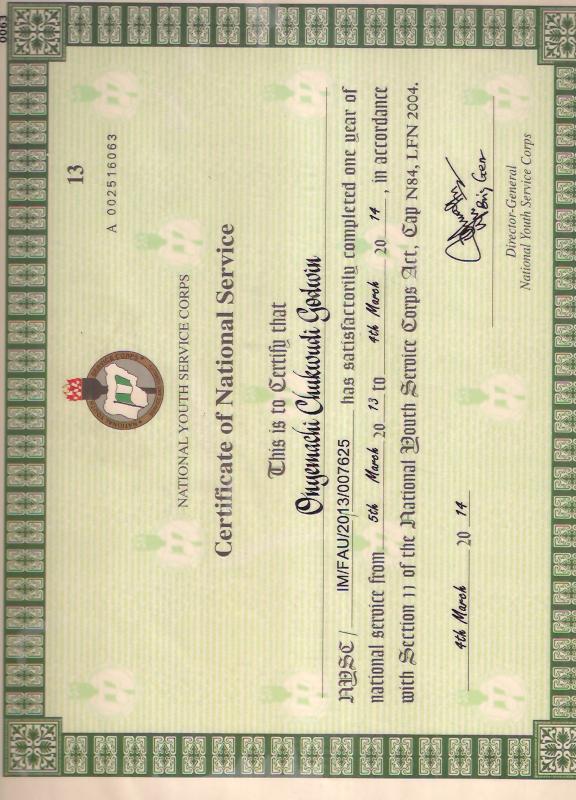 0063
13
A 002516063
NATIONAL YOUTH SERVICE CORPS
Certificate of National Service
This is to Certify that
Onyemachi Chukwudi Godwin
NYSC / IM/FAU/2013/007625 has satisfactorily completed one year of
national service from 5th March 20 13 to 4th March 20 14, in accordance
with Section 11 of the National Youth Service Corps Act, Cap N84, LFN 2004.
4th March 20 14
Brig Gen
Director-General
National Youth Service Corps